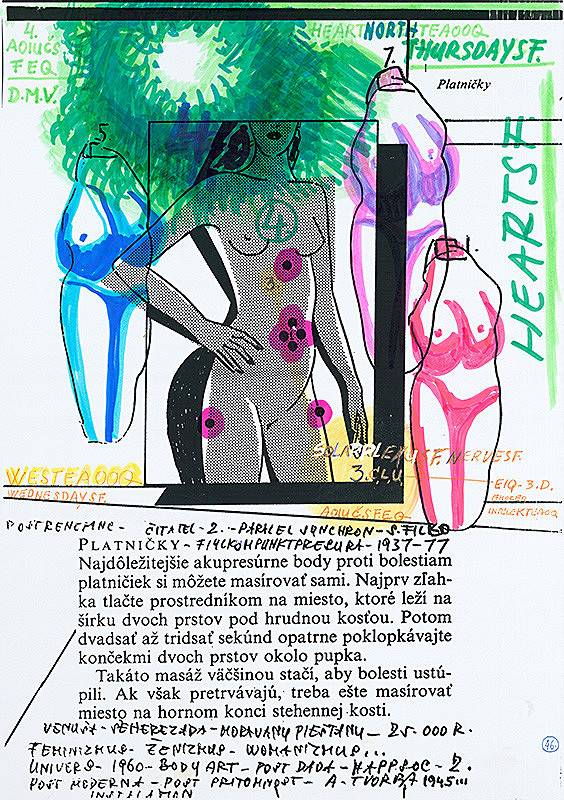 4.
AOIUČS
FEQ
D.M.V.
HEARTNORTHTEAOOQ
THURSDAYSF.
7.
Platničky
5.
4.
HEARTSF
1.
SOLARPLEXUSF. NERVESF.
3. ČLU
EIQ-3.D.
WESTEAOOQ
WEDNESDAYSF.
AOIUČSFEQ
ČITATEL-2.-PARALEL SYNCHRON-S.FILKO
PLATNIČKY-FYLKOMPUNKTPRESURA-1937-77
Najdôležitejšie akupresúrne body proti bolestiam
platničiek si môžete masírovať sami. Najprv zľah-
ka tlačte prostredníkom na miesto, ktoré leží na
šírku dvoch prstov pod hrudnou kosťou. Potom
dvadsať až tridsať sekúnd opatrne poklopkávajte
končekmi dvoch prstov okolo pupka.
Takáto masáž väčšinou stačí, aby bolesti ustú-
pili. Ak však pretrvávajú, treba ešte masírovať
miesto na hornom konci stehennej kosti.
VENUŠA-ŠEHEREZADA-MORAVANY PIEŠŤANY-25.000 R.
FEMINIZMUS-ŽENIZMUS-WOMANIZMUS...
UNIVERS-1960-BODY ART-POST DADA-HAPPSOC-2.
POST MODERNA-POST PRITOMNOST-A-TVORBA 1945...
INSTALATION
46.